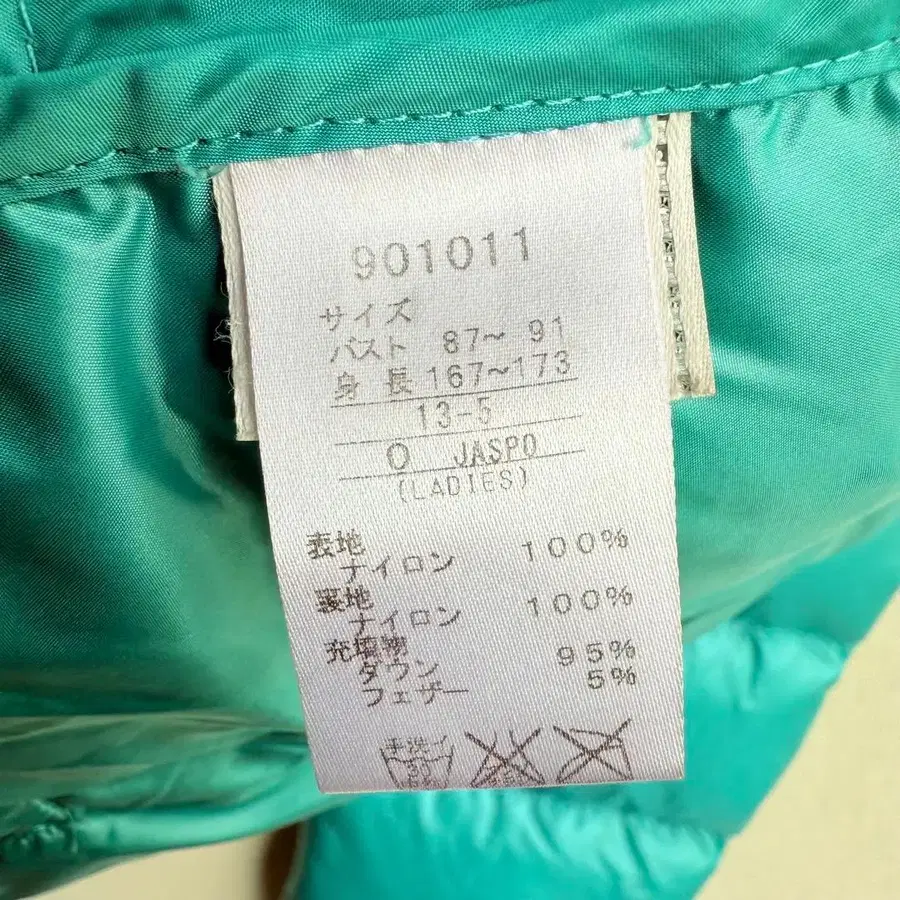 901011
サイズ
バスト 87～ 91
身 長 167～173
13-5
O JASPO
(LADIES)
表地
ナイロン 100%
裏地
ナイロン 100%
充填物
ダウン 95%
フェザー 5%
手洗イ
30